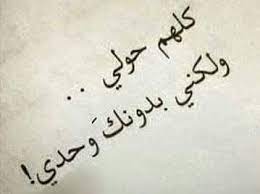 كلهم حولي ..
ولكني بدونكَ وحدي!